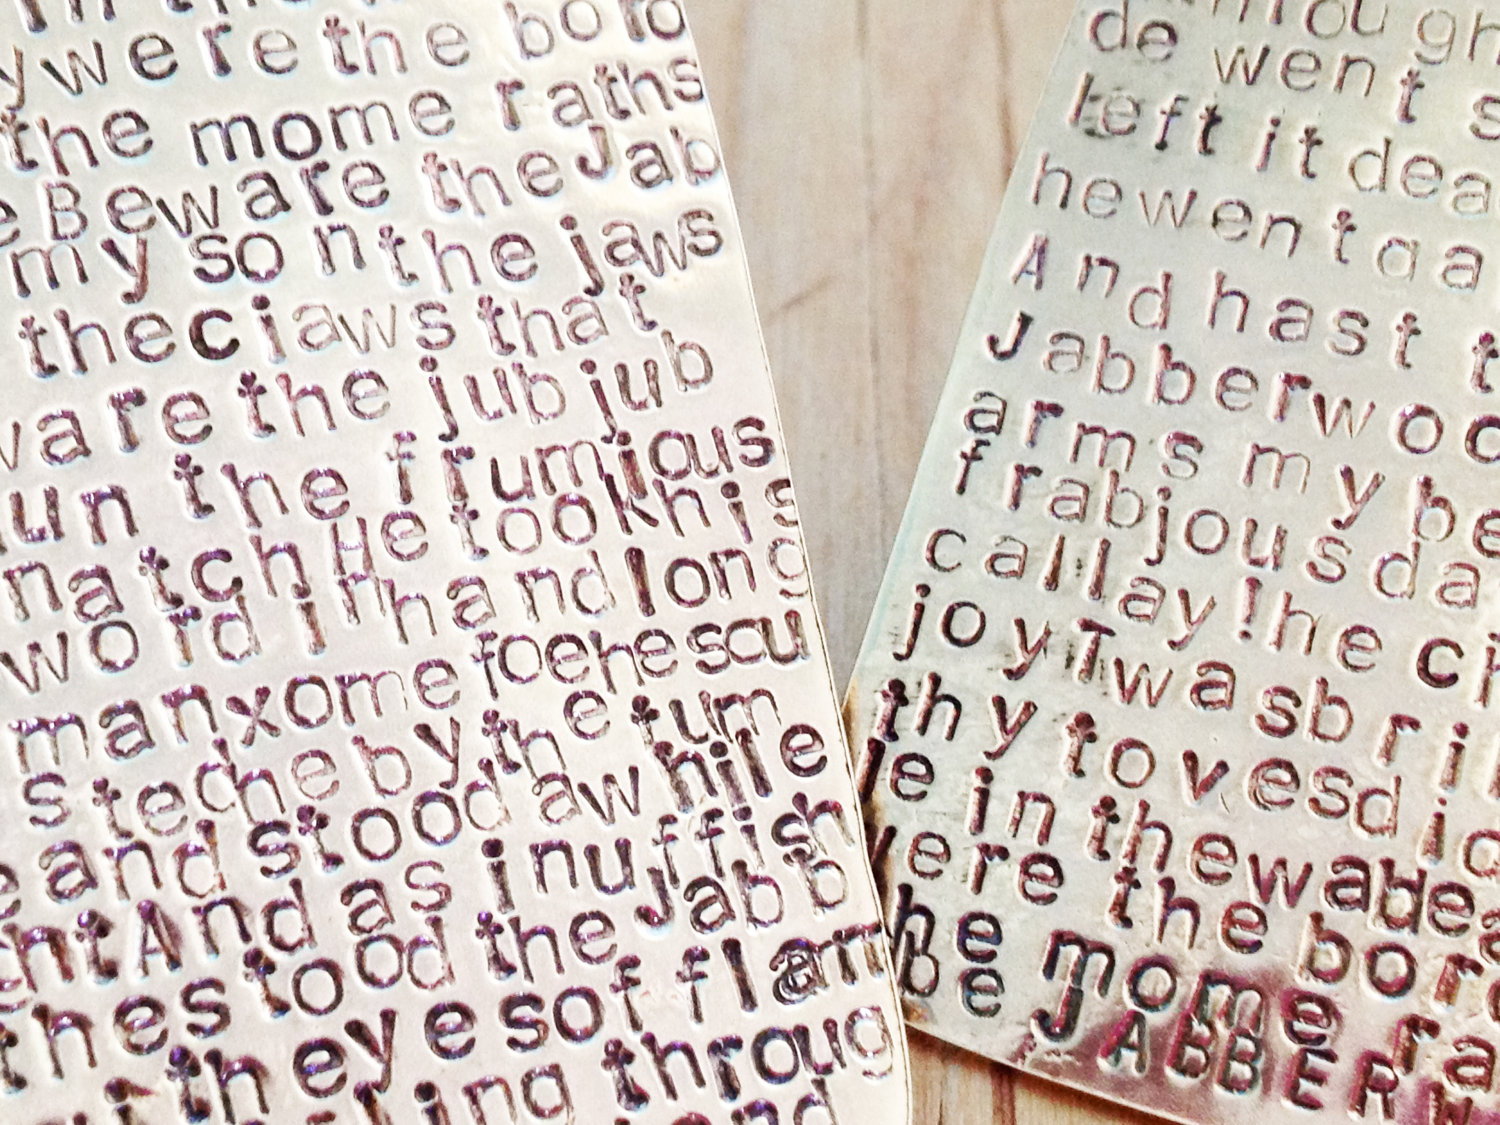 y were the bo ro
the mome raths
e Beware the Jab
my son the jaws
the ciaws that
ware the jub jub
un the frumious
natch He took his
word in hand long
manxome foe he sou
s teche by the tum
e and stood awhile
ht And as in uffish
the stood the Jabb
the eyes of flam
ing throug
and
through
de went s
left it dea
he went ga
And hast t
Jabberwoc
arms my be
frabjous da
callay! he c
joy Twas bril
thy toves d id
le in the wabea
were the boro
he mome ra
be JABBERW